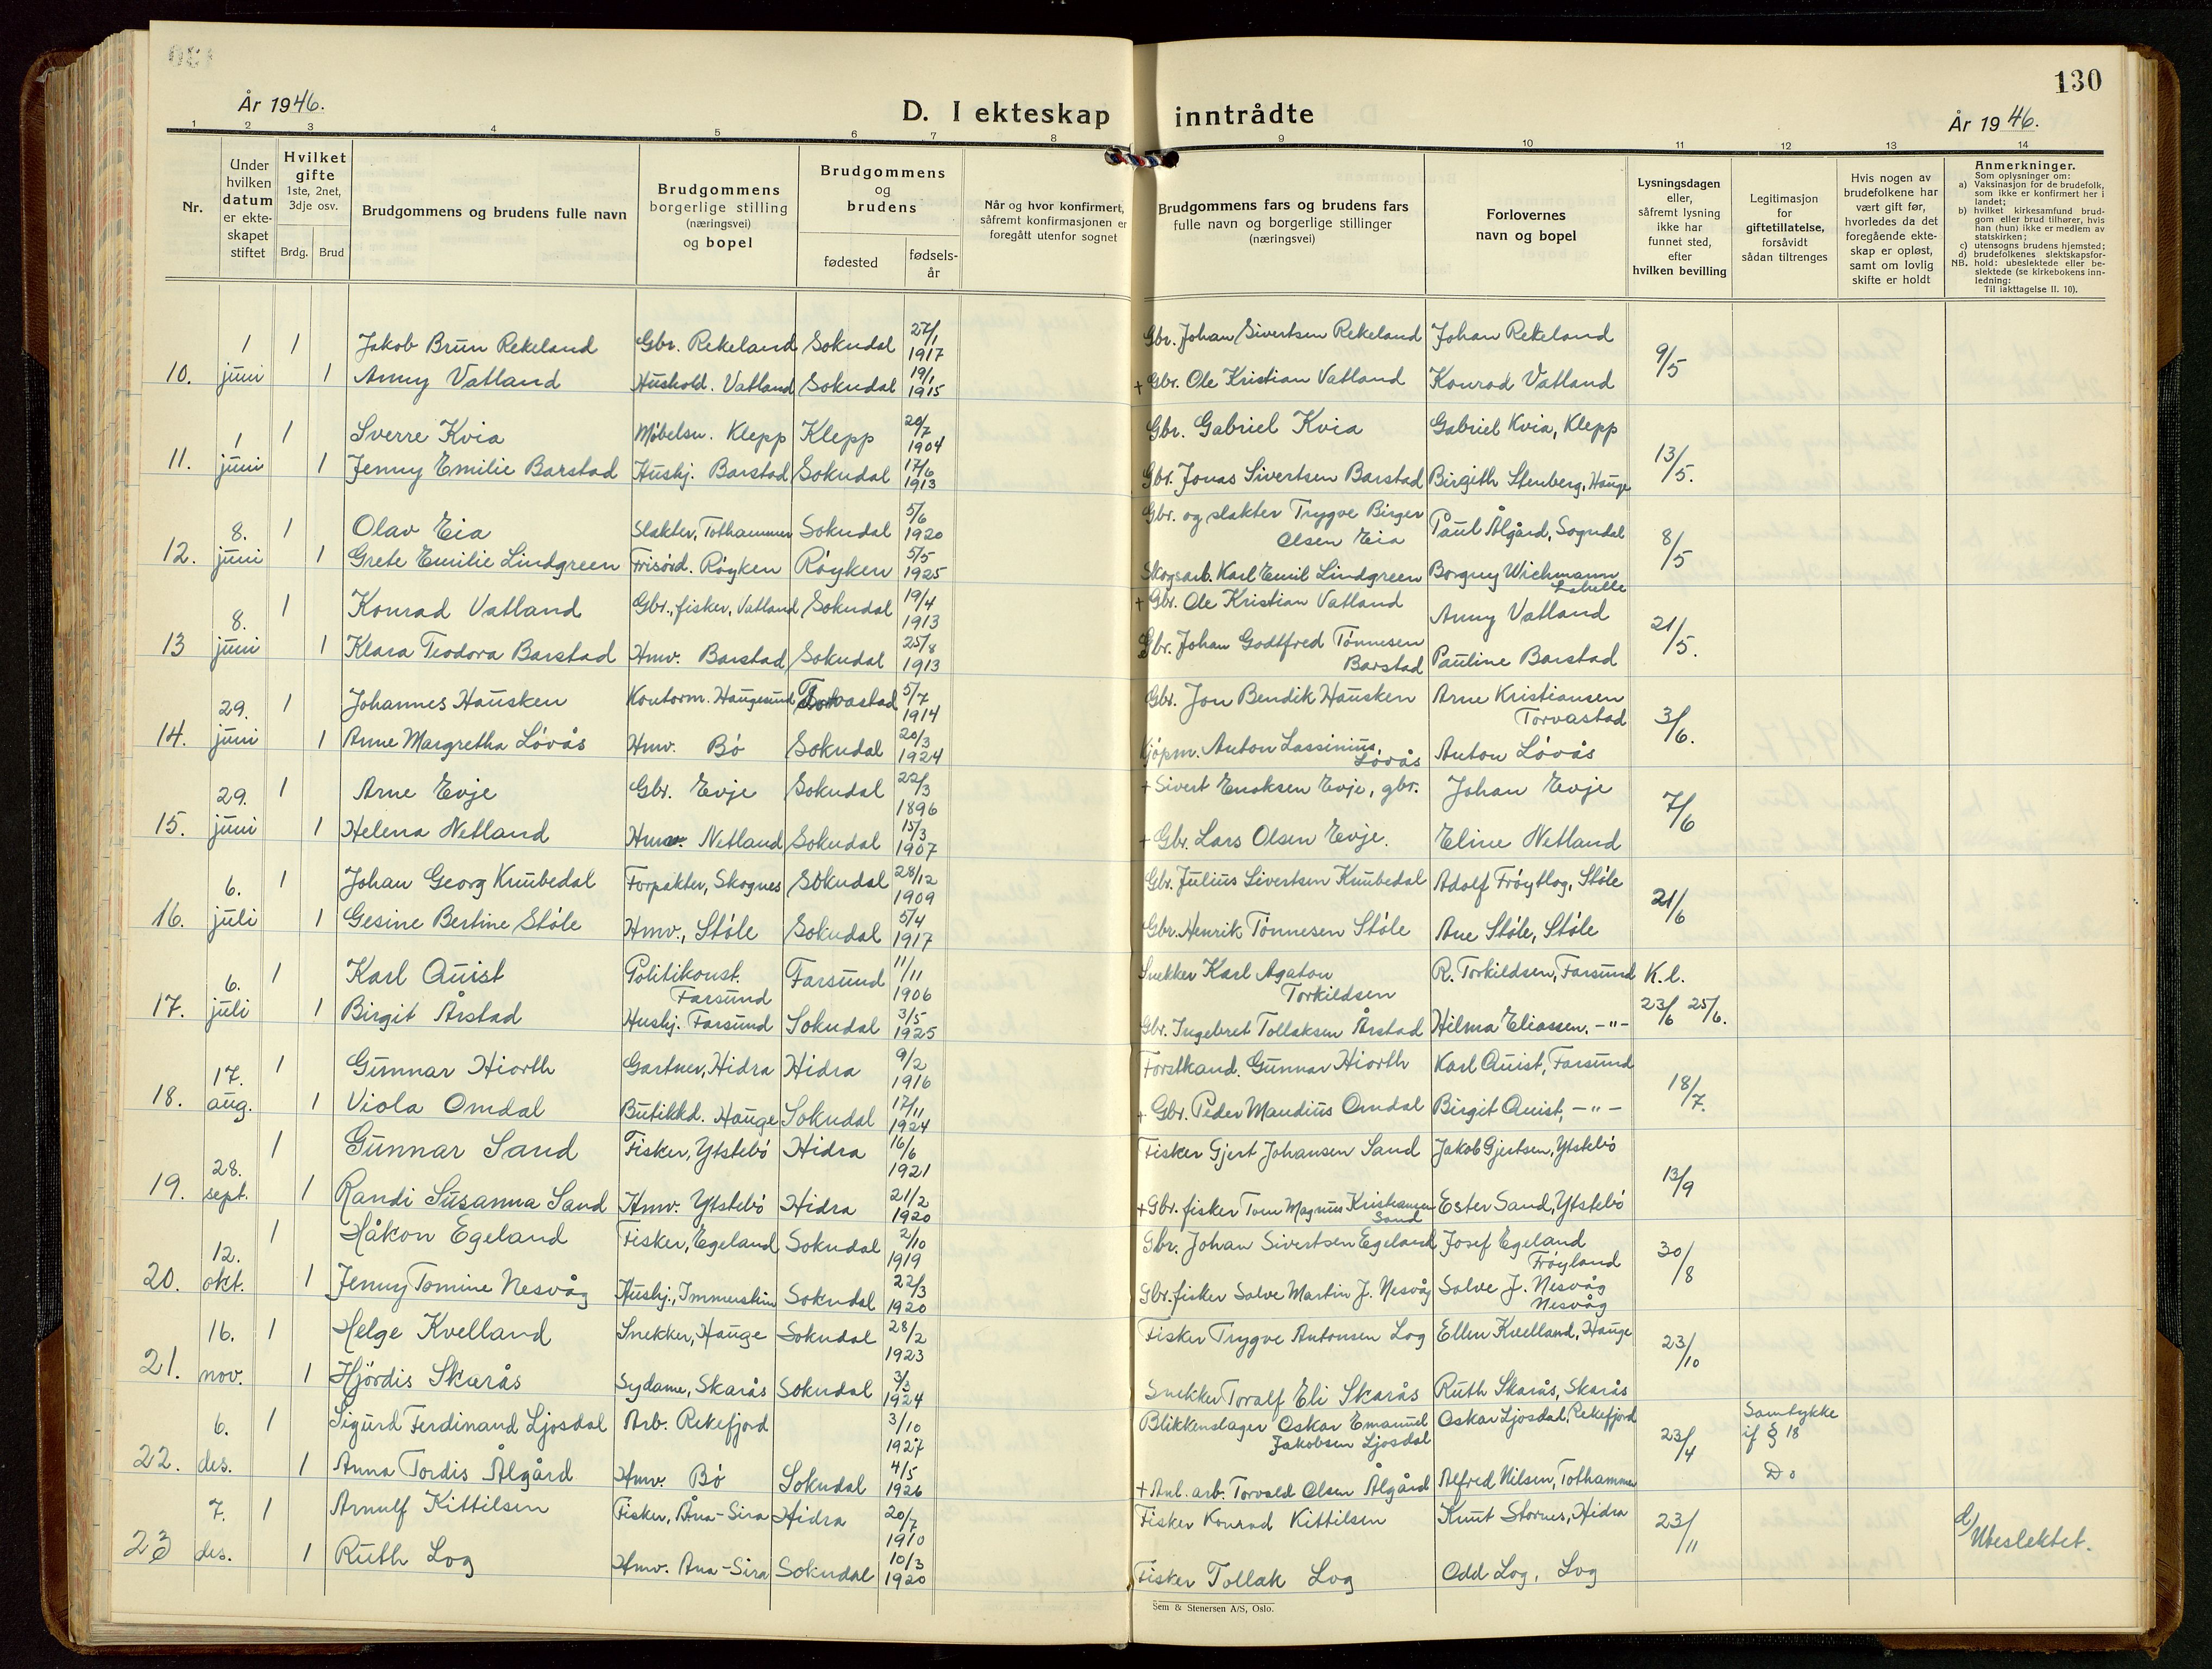 130
År 1946.
D. I ekteskap inntrådte
År 1946.
1 2 3 4 5 6 7 8 9 10 11 12 13 14
Nr.
Under hvilken datum er ekteskapet stiftet
Hvilket gifte 1ste, 2net, 3dje osv.
Brdg. Brud
Brudgommens og brudens fulle navn
Brudgommens borgerlige stilling (næringsvei) og bopel
Brudgommens og brudens
fødested
fødselsår
Når og hvor konfirmert, såfremt konfirmasjonen er foregått utenfor sognet
Brudgommens fars og brudens fars fulle navn og borgerlige stillinger (næringsvei)
Forlovernes navn og bopel
Lysningsdagen eller, såfremt lysning ikke har funnet sted, efter hvilken bevilling
Legitimasjon for giftetillatelse, forsåvidt sådan tiltrenges
Hvis nogen av brudefolkene har vært gift før, hvorledes da det foregående ekteskap er opløst, samt om lovlig skifte er holdt
Anmerkninger.
Som oplysninger om:
a) Vaksinasjon for de brudefolk, som ikke er konfirmert her i landet;
b) hvilket kirkesamfund brudgom eller brud tilhører, hvis han (hun) ikke er medlem av statskirken;
c) utensogns brudens hjemsted;
d) brudefolkenes slektskapsforhold: ubeslektede eller beslektede (se kirkebokens innledning:
NB. Til iakttagelse II. 10).
1 1 Jakob Brun Rekeland Gbr. Rekeland Sokndal 27/1 1917 Gbr. Johan Sivertsen Rekeland Johan Rekeland 9/5
10. juni 1 Anny Vatland Hushold. Vatland Sokndal 19/1 1915 + Gbr. Ole Kristian Vatland Konrad Vatland
1 1 Sverre Kvia Møbelsn. Klepp Klepp 20/7 1904 Gbr. Gabriel Kvia Gabriel Kvia, Klepp 13/5.
11. juni 1 Jenny Emilie Barstad Hushj. Barstad Sokndal 17/6 1913 Gbr. Jonas Sivertsen Barstad Birgith Stenberg, Hauge
8. 1 Olav Eia Slakter, Tothammer Sokndal 5/6 1920 Gbr. og slakter Trygve Birger Olsen Eia Paul Ålgård, Sogndal 8/5
12. juni 1 Grete Emilie Lindgreen Frisørd. Røyken Røyken 5/5 1925 Skogsarb. Karl Emil Lindgreen Borgny Wichmann Labelle
8. 1 Konrad Vatland Gbr., fisker, Vatland Sokndal 19/4 1913 + Gbr. Ole Kristian Vatland Anny Vatland 21/5.
13 juni 1 Klara Teodora Barstad Hmv. Barstad Sokndal 25/8 1913 Gbr. Johan Godtfred Tønnesen Barstad Pauline Barstad
29. 1 Johannes Hausken Kontorm. Haugesund Torvastad 5/7 1914 Gbr. Jon Bendik Hausken Arne Kristiansen Torvastad 3/6.
14. juni 1 Anne Margretha Løvås Hmv. Bø Sokndal 20/3 1924 Kjøpm. Anton Lassinius Løvås Anton Løvås
29. 1 Arne Evje Gbr. Evje Sokndal 22/3 1896 + Sivert Enoksen Evje, gbr. Johan Evje 7/6
15. juni 1 Helena Netland Hmv. Netland Sokndal 15/3 1907 + Gbr. Lars Olsen Evje. Eline Netland
6. 1 Johan Georg Knubedal Forpakter, Skognes Sokndal 28/12 1909 Gbr. Julius Sivertsen Knubedal Adolf Frøytlog, Støle 21/6
16. juli 1 Gesine Bertine Støle Hmv., Støle Sokndal 5/4 1917 Gbr. Henrik Tønnesen Støle Ane Støle, Støle
6. 1 Karl Quist Politikonst. Farsund Farsund 11/11 1906 Snekker Karl Agaton Torkildsen R. Torkildsen, Farsund K.l.
17. juli 1 Birgit Årstad Hushj. Farsund Sokndal 3/5 1925 Gbr. Ingebret Tollaksen Årstad Hilma Eliassen, -"- 23/6 25/6.
17. 1 Gunnar Hiorth Gartner, Hidra Hidra 9/2 1916 Forstkand. Gunnar Hiorth Karl Quist, Farsund 18/7.
18. aug. 1 Viola Omdal Butikkd. Hauge Sokndal 17/11 1924 + Gbr. Peder Mandius Omdal Birgit Quist, -"-
1 Gunnar Sand Fisker, Ytstebø Hidra 16/6 1921 Fisker Gjert Johansen Sand Jakob Gjertsen, Ytstebø
19. 28. sept. 1 Randi Susanna Sand Hmv. Ytstebø Hidra 21/2 1920 + Gbr. fisker Tom Magnus Kristiansen Sand Ester Sand, Ytstebø 13/9
12. 1 Håkon Egeland Fisker, Egeland Sokndal 2/10 1919 Gbr. Johan Sivertsen Egeland Josef Egeland Frøyland 30/8
20. okt. 1 Jenny Tomine Nesvåg Hushj., Immerstein Sokndal 22/3 1920 Gbr. fisker Salve Martin J. Nesvåg Salve J. Nesvåg Nesvåg
16. 1 Helge Kvelland Snekker, Hauge Sokndal 28/2 1923 Fisker Trygve Antonsen Log Ellen Kvelland, Hauge 23/10
21. nov. 1 Hjördis Skarås Sydame, Skarås Sokndal 3/3 1924 Snekker Toralf Eli Skarås Ruth Skarås, Skarås
6. 1 Sigurd Ferdinand Ljosdal Arb. Rekefjord 3/10 1927 Blikkenslager Oskar Emanuel Jakobsen Ljosdal Oskar Ljosdal, Rekefjord 23/4 Samtykke if § 18
22. des. 1 Anna Tordis Ålgård Hmv. Bø Sokndal 4/5 1926 + Anl. arb. Torvald Olsen Ålgård Alfred Nilsen, Tothammer Do
7. 1 Arnulf Kittilsen Fisker, Åna-Sira Hidra 20/7 1910 Fisker Konrad Kittilsen Knut Stornes, Hidra 23/11 d/ Ubeslektet.
23 des. 1 Ruth Log Hmv. Ana-Sira Sokndal 10/3 1920 Fisker Tollak Log Odd Log, Log
Sem & Stenersen A/S, Oslo.